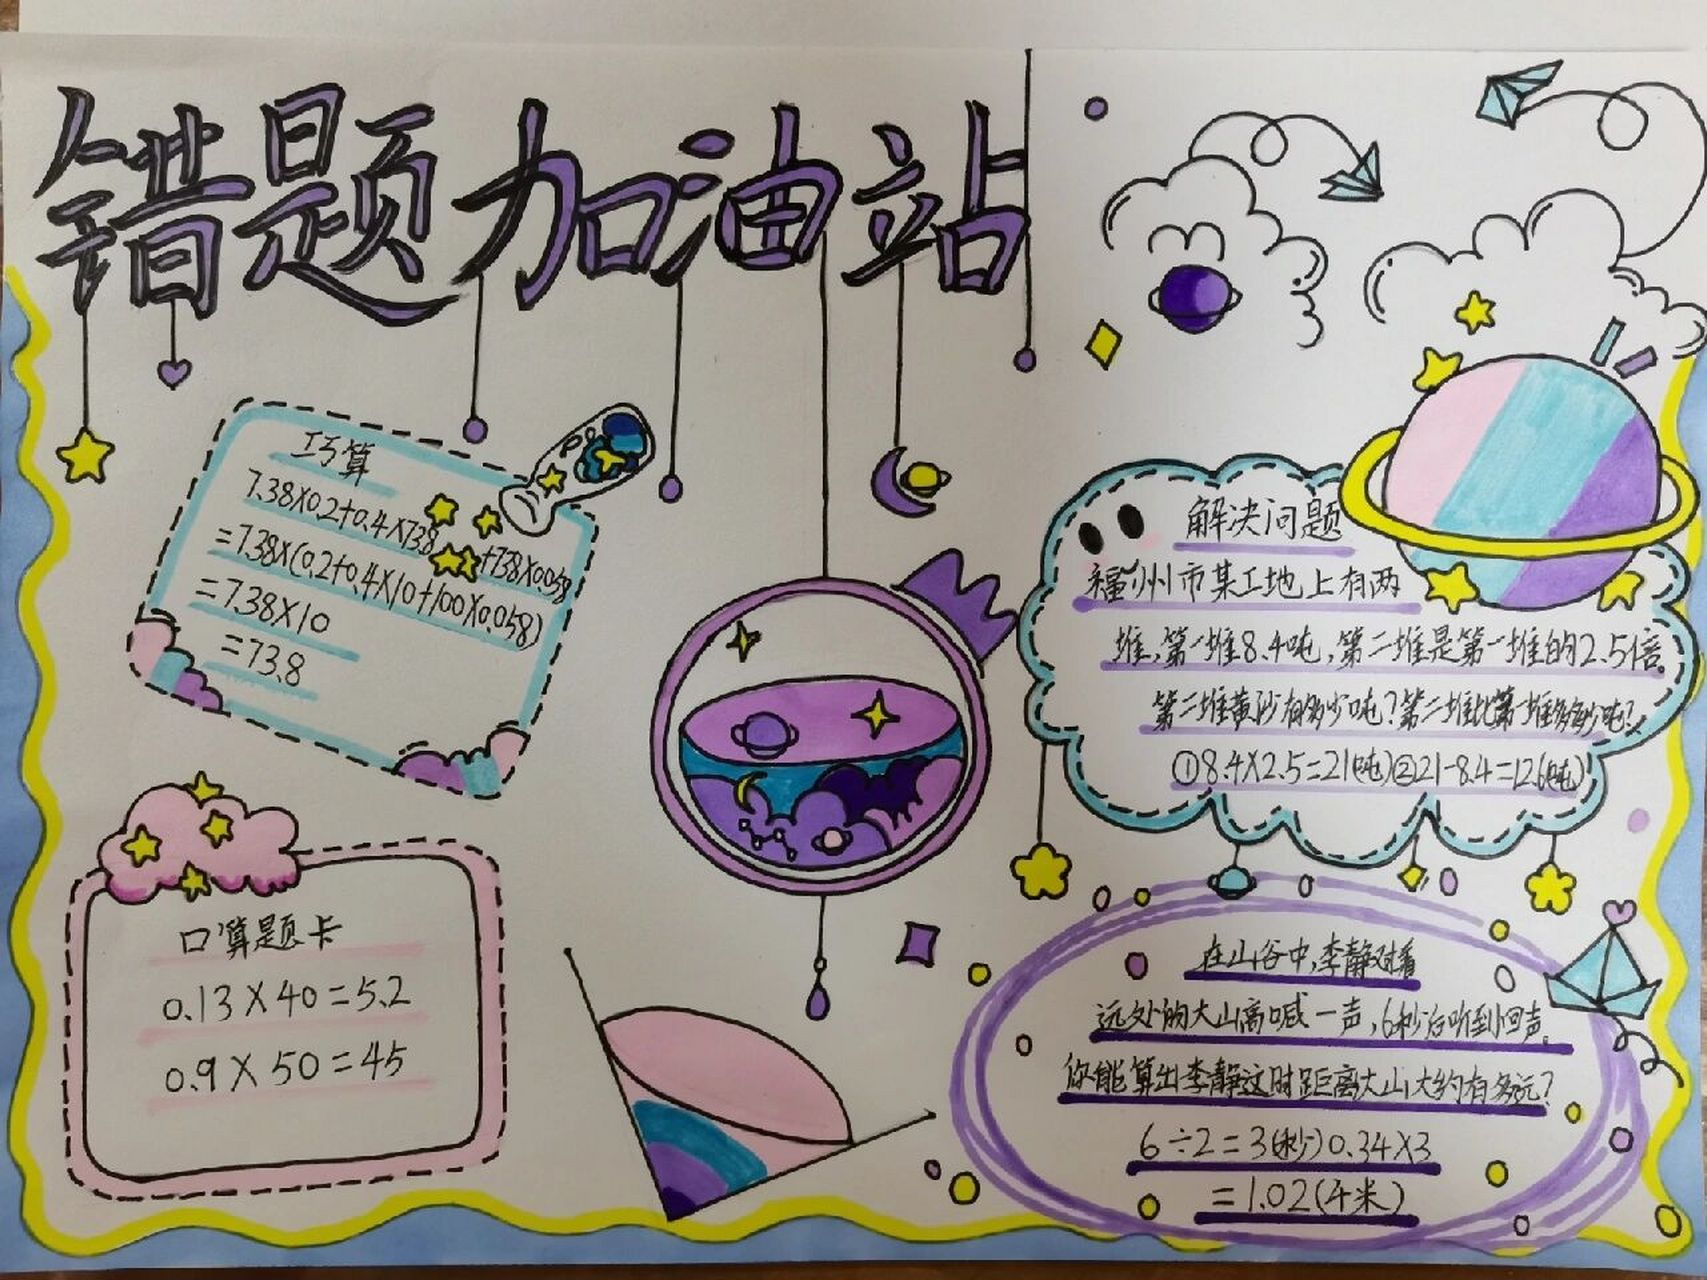 错题加油站
巧算
7.38×0.2+0.4×73.8+738×0.058
=7.38×(0.2+0.4×10+100×0.058)
=7.38×10
=73.8
口算题卡
0.13×40=5.2
0.9×50=45
解决问题
福州市某工地上有两
堆,第一堆8.4吨,第二堆是第一堆的2.5倍。
第二堆黄沙有多少吨?第二堆比第一堆多多少吨?
①8.4×2.5=21(吨)②21-8.4=12.6(吨)
在山谷中,李静对着
远处的大山高喊一声,6秒后听到回声。
你能算出李静这时距离大山大约有多远?
6÷2=3(秒)0.34×3
=1.02(千米)